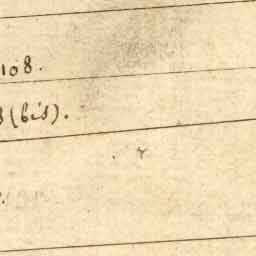 108.
8 (bis).